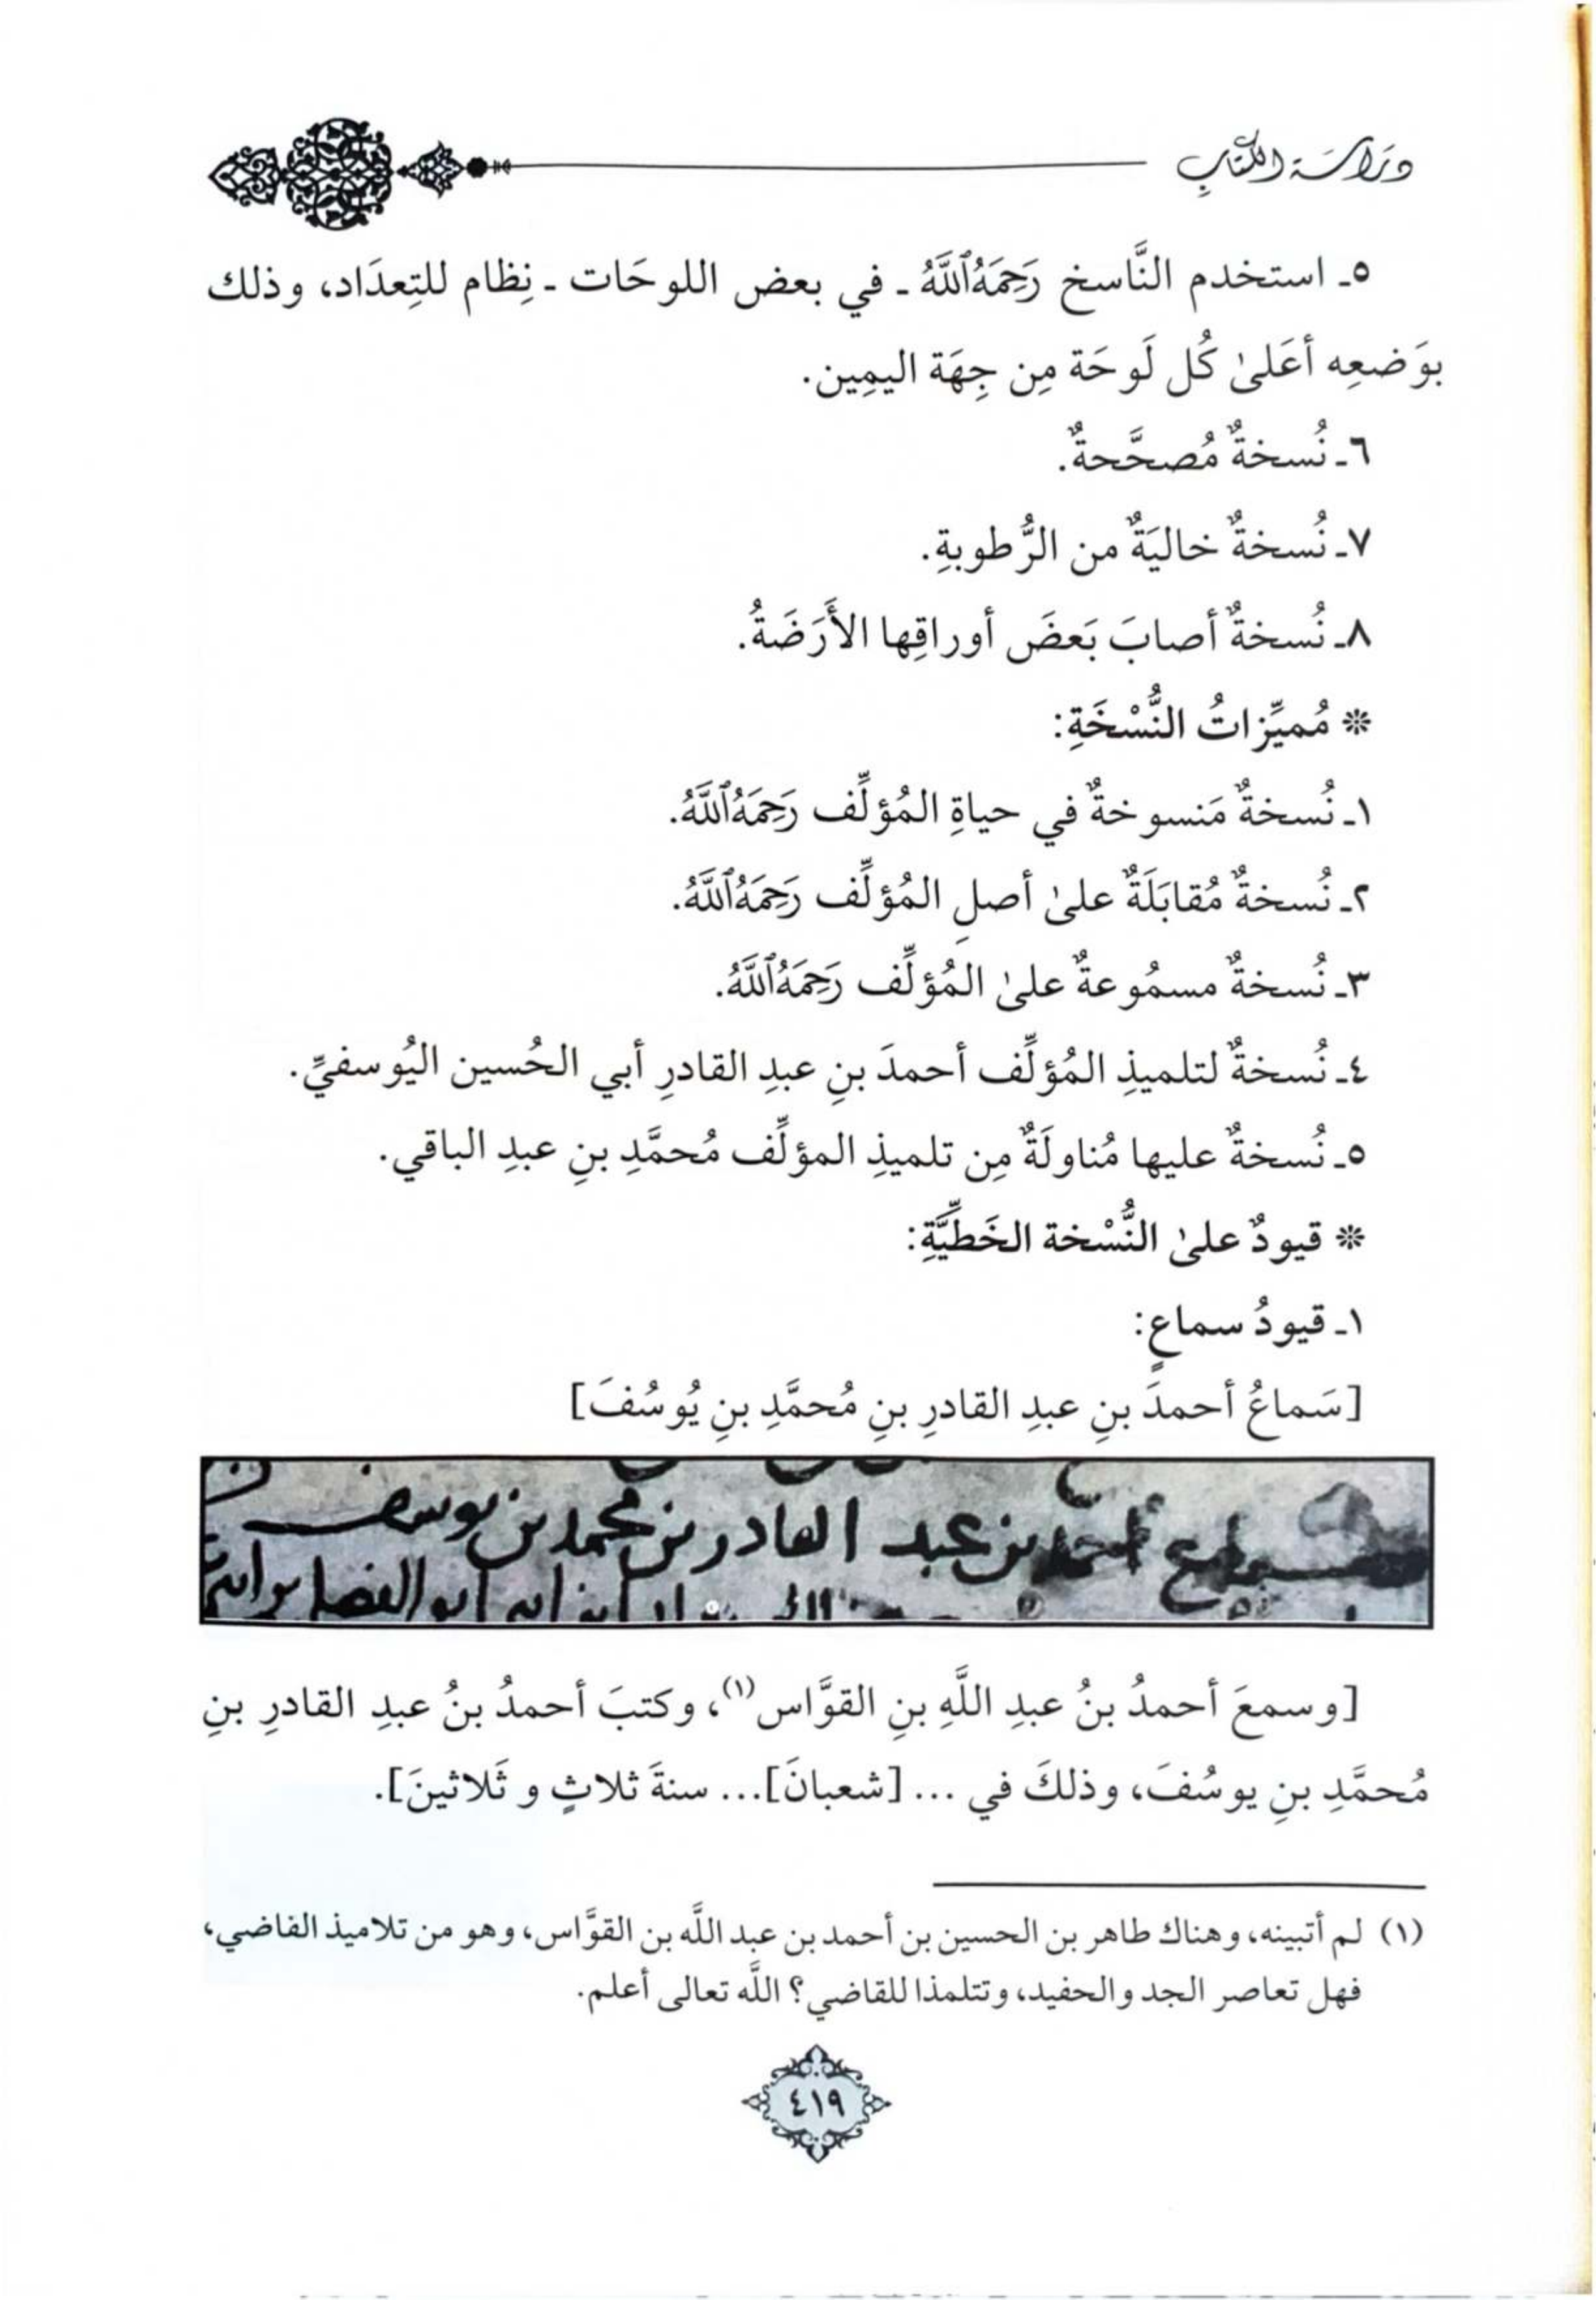 دراسة الكتاب
٥ـ استخدم النَّاسخ رَحِمَهُ ٱللَّهُ ـ في بعض اللوحَات ـ نِظام للتِعدَاد، وذلك
بوَضعِه أعَلىٰ كُل لَوحَة مِن جِهَة اليمِين.
٦ـ نُسخةٌ مُصحَّحةٌ.
٧ـ نُسخةٌ خاليَةٌ من الرُّطوبةِ.
٨ـ نُسخةٌ أصابَ بَعضَ أوراقِها الأَرَضَةُ.
❊ مُميِّزاتُ النُّسْخَةِ:
١ـ نُسخةٌ مَنسوخةٌ في حياةِ المُؤلِّف رَحِمَهُ ٱللَّهُ.
٢ـ نُسخةٌ مُقابَلَةٌ علىٰ أصلِ المُؤلِّف رَحِمَهُ ٱللَّهُ.
٣ـ نُسخةٌ مسمُوعةٌ علىٰ المُؤلِّف رَحِمَهُ ٱللَّهُ.
٤ـ نُسخةٌ لتلميذِ المُؤلِّف أحمدَ بنِ عبدِ القادرِ أبي الحُسين اليُوسفيِّ.
٥ـ نُسخةٌ عليها مُناولَةٌ مِن تلميذِ المؤلِّف مُحمَّدِ بنِ عبدِ الباقي.
❊ قيودٌ علىٰ النُّسْخة الخَطيَّةِ:
١ـ قيودُ سماعٍ:
[سَماعُ أحمدَ بنِ عبدِ القادرِ بنِ مُحمَّدِ بنِ يُوسُفَ]
سماع أحمد بن عبد القادر بن محمد بن يوسف
أبو الفضل
[وسمعَ أحمدُ بنُ عبدِ اللَّهِ بنِ القوَّاس(١)، وكتبَ أحمدُ بنُ عبدِ القادرِ بنِ
مُحمَّدِ بنِ يوسُفَ، وذلكَ في ... [شعبانَ]... سنةَ ثلاثٍ و ثَلاثينَ].
(١) لم أتبينه، وهناك طاهر بن الحسين بن أحمد بن عبد اللَّه بن القوَّاس، وهو من تلاميذ القاضي،
فهل تعاصر الجد والحفيد، وتتلمذا للقاضي؟ اللَّه تعالى أعلم.
٤١٩